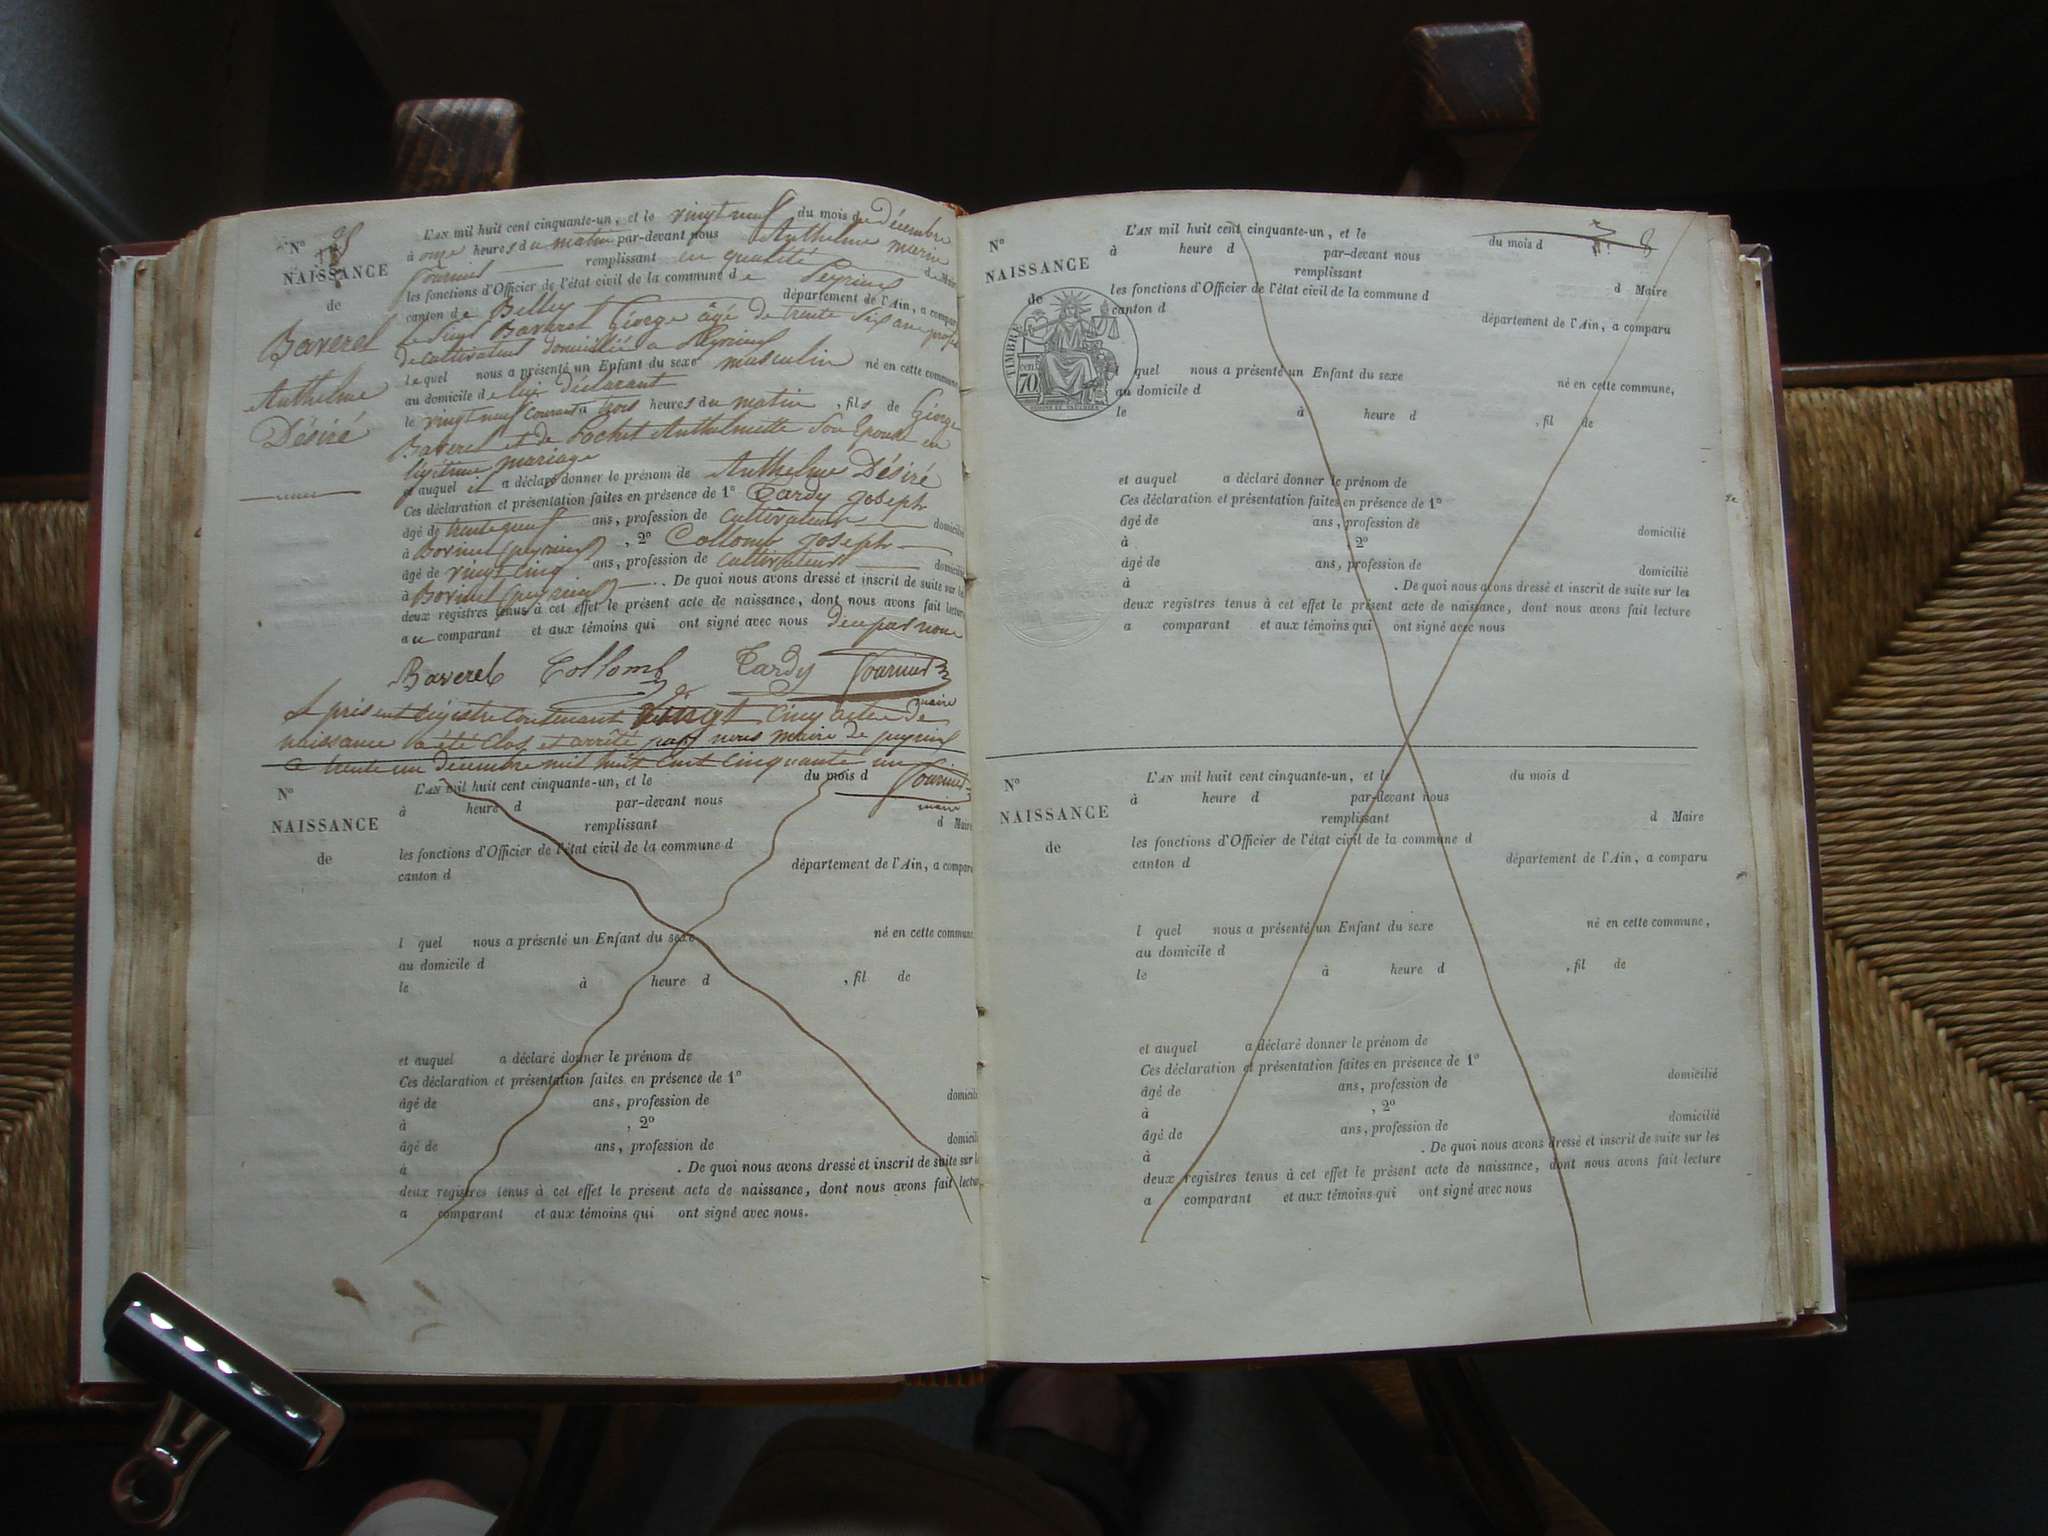 N° 25
NAISSANCE
de
Baverel
Anthelme
Désiré
L'AN mil huit cent cinquante-un, et le vingt neuf du mois de décembre
à onze heures du matin par-devant nous Anthelme marin
Fournier remplissant en qualité d Maire
les fonctions d'Officier de l'état civil de la commune de Peyrieu
canton de Belley département de l'Ain, a comparu
le Sieur Baverel George âgé de trente six ans
de cultivateur domicilié a Peyrieu
lequel nous a présenté un Enfant du sexe masculin né en cette commune,
au domicile de lui déclarant
le vingt neuf courant à trois heures du matin, fils de George
Baverel et de Pochet Anthelmette Son Epouse en
légitime mariage
et auquel il a déclaré donner le prénom de Anthelme Désiré
Ces déclaration et présentation faites en présence de 1° Tardy Joseph
âgé de trente neuf ans, profession de cultivateur domicilié
à (peyrieu), 2° Collomb Joseph
âgé de vingt cinq ans, profession de cultivateur domicilié
à (peyrieu). De quoi nous avons dressé et inscrit de suite sur les
deux registres tenus à cet effet le présent acte de naissance, dont nous avons fait lecture
au comparant et aux témoins qui ont signé avec nous
Baverel Collomb Tardy Fournier
maire
Le présent registre contenant vingt cinq actes de
naissance a été clos et arrêté par nous maire de peyrieu
ce trente un décembre mil huit cent cinquante un
Fournier
maire
N°
NAISSANCE
de
L'AN mil huit cent cinquante-un, et le du mois d
à heure d par-devant nous
remplissant d Maire
les fonctions d'Officier de l'état civil de la commune d
canton d département de l'Ain, a comparu
l quel nous a présenté un Enfant du sexe né en cette commune
au domicile d
le à heure d , fil de
et auquel a déclaré donner le prénom de
Ces déclaration et présentation faites en présence de 1°
âgé de ans, profession de domicilié
à , 2°
âgé de ans, profession de domicilié
à . De quoi nous avons dressé et inscrit de suite sur les
deux registres tenus à cet effet le présent acte de naissance, dont nous avons fait lecture
a comparant et aux témoins qui ont signé avec nous.
8
N°
NAISSANCE
de
TIMBRE
70
L'AN mil huit cent cinquante-un, et le du mois d
à heure d par-devant nous
remplissant d Maire
les fonctions d'Officier de l'état civil de la commune d
canton d département de l'Ain, a comparu
l quel nous a présenté un Enfant du sexe né en cette commune,
au domicile d
le à heure d , fil de
et auquel a déclaré donner le prénom de
Ces déclaration et présentation faites en présence de 1°
âgé de ans, profession de domicilié
à , 2°
âgé de ans, profession de domicilié
à . De quoi nous avons dressé et inscrit de suite sur les
deux registres tenus à cet effet le présent acte de naissance, dont nous avons fait lecture
a comparant et aux témoins qui ont signé avec nous
N°
NAISSANCE
de
L'AN mil huit cent cinquante-un, et le du mois d
à heure d par-devant nous
remplissant d Maire
les fonctions d'Officier de l'état civil de la commune d
canton d département de l'Ain, a comparu
l quel nous a présenté un Enfant du sexe né en cette commune,
au domicile d
le à heure d , fil de
et auquel a déclaré donner le prénom de
Ces déclaration et présentation faites en présence de 1°
âgé de ans, profession de domicilié
à , 2°
âgé de ans, profession de domicilié
à . De quoi nous avons dressé et inscrit de suite sur les
deux registres tenus à cet effet le présent acte de naissance, dont nous avons fait lecture
a comparant et aux témoins qui ont signé avec nous